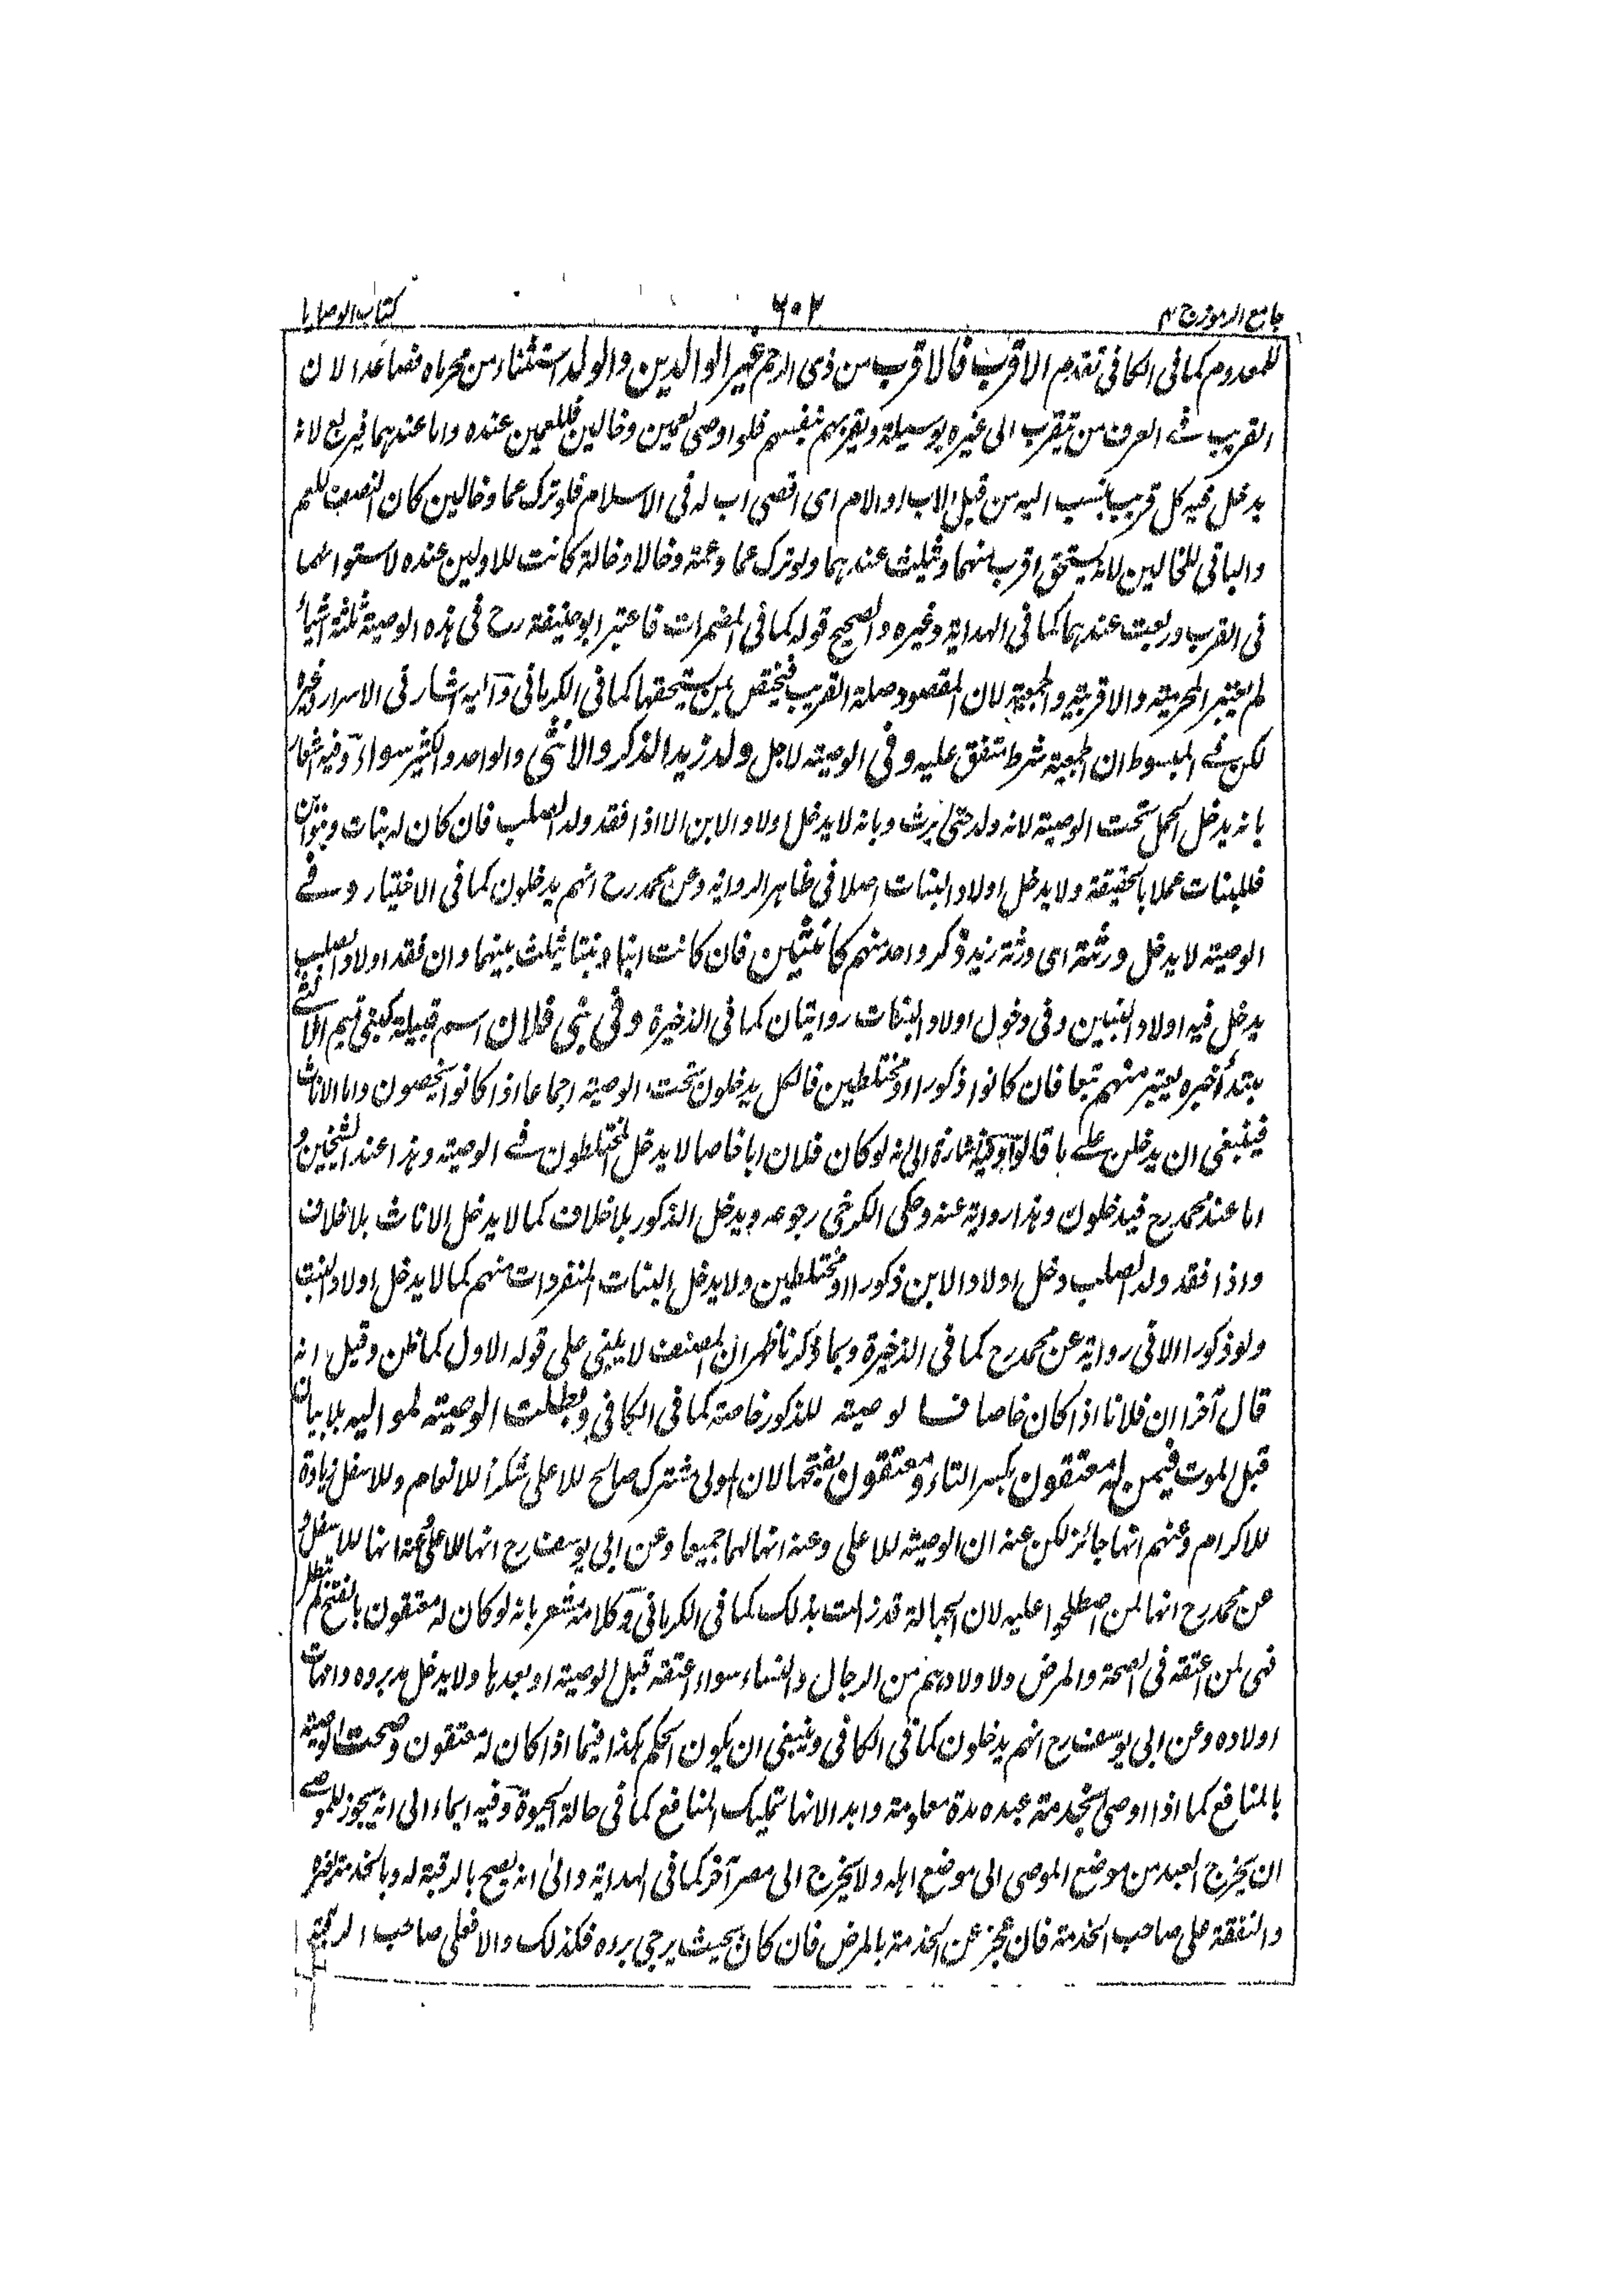 جامع الرموز ج ٣
٦٠٢
كتاب الوصايا
للمعدوم كما في الكافي تقدم الاقرب فالاقرب من ذى الرحم غير الوالدين والولد استثناء من محرماه فصاعدا لان
القريب في العرف من يتقرب الى غيره بوسيلة وتقربهم بنفسهم فلو اوصى لعمين وخالين فللعمين عنده واما عندهما فيربع لانه
يدخل فيه كل قريب ينسب اليه من قبل الاب او الام اى اقصى اب له في الاسلام فلو ترك عما وخالين كان النصف للعم
والباقي للخالين لانه يستحق اقرب منهما وثلث عندهما ولو ترك عما وعمة وخالا وخالة كانت للاولين عنده لاستوائهما
في القرب وربعت عندهما كما في الهداية وغيره والصحيح قوله كما في المضمرات فاعتبر ابو حنيفة رح في هذه الوصية ثلثة اشياء
لم يعتبر المحرمية والاقربية والجمعية لان المقصود صلة القريب فيختص بمن يستحقها كما في الكرماني واليه اشار في الاسرار وغيره
لكن في المبسوط ان الجمعية شرط متفق عليه وفي الوصية لاجل ولد زيد الذكر والانثى والواحد والكثير سواء وفيه اشعار
بانه يدخل الحمل تحت الوصية لانه ولد حتى يرث وبانه لا يدخل اولاد الابن الا اذا فقد ولد الصلب فان كان له بنات وبنو ابن
فللبنات عملا بالحقيقة ولا يدخل اولاد البنات اصلا في ظاهر الرواية وعن محمد رح انهم يدخلون كما في الاختيار وفي
الوصية لا يدخل ورثته اى ورثة زيد ذكر واحد منهم كانثيين فان كانت ابنا وبنتا يثلث بينهما وان فقد اولاد الصلب
يدخل فيه اولاد البنين وفي دخول اولاد البنات روايتان كما في الذخيرة وفي بني فلان اسم قبيلة كبني تميم الانثى
مبتدأ خبره يعتبر منهم تبعا فان كانوا ذكورا او مختلطين فالكل يدخلون تحت الوصية اجماعا اذا كانوا يحصون واما الاناث
فينبغي ان يدخلن على ما قالوا وفيه اشارة الى انه لو كان فلان ابا خاصا لا يدخل المختلطون في الوصية وهذا عند الشيخين و
اما عند محمد رح فيدخلون وهذا رواية عنه وحكى الكرخي رجوعه ويدخل الذكور بلا خلاف كما لا يدخل الاناث بلا خلاف
واذا فقد ولد الصلب دخل اولاد الابن ذكورا او مختلطين ولا يدخل البنات المنفردات منهم كما لا يدخل اولاد البنت
ولو ذكورا الا في رواية عن محمد رح كما في الذخيرة وبما ذكرنا ظهر ان المصنف لا يبنى على قوله الاول كما ظن وقيل انه
قال آخرا ان فلانا اذا كان خاصا فالوصية للذكور خاصة كما في الكافي وبطلت الوصية لمواليه بلا بيان
قبل الموت فيمن له معتقون بكسر التاء ومعتقون بفتحها لان المولى مشترك صالح للاعلى شكرا للانعام وللاسفل زيادة
للاكرام وعنهم انها جائز لكن عنه ان الوصية للاعلى وعنه انها لهما جميعا وعن ابي يوسف رح انها للاعلى وعنه انها للاسفل و
عن محمد رح انها لمن اصطلحوا عليه لان الجهالة قد زالت بذلك كما في الكرماني وكلامه مشعر بانه لو كان له معتقون بالفتح لم تبطل
فهي لمن اعتقه في الصحة والمرض ولاولادهم من الرجال والنساء سواء اعتقه قبل الوصية او بعدها ولا يدخل مدبروه وامهات
اولاده وعن ابي يوسف رح انهم يدخلون كما في الكافي وينبغي ان يكون الحكم هكذا فيما اذا كان له معتقون وصحت الوصية
بالمنافع كما اذا اوصى بخدمة عبده مدة معلومة وابدا لانها تمليك المنافع كما في حالة الحيوة وفيه ايماء الى انه يجوز للموصى
ان يخرج العبد من موضع الموصى الى موضع اهله ولا يخرج الى مصر آخر كما في الهداية والى انه يصح بالرقبة له وبالخدمة لغيره
والنفقة على صاحب الخدمة فان عجز عن الخدمة بالمرض فان كان بحيث يرجى بروه فكذلك والا فعلى صاحب الرقبة